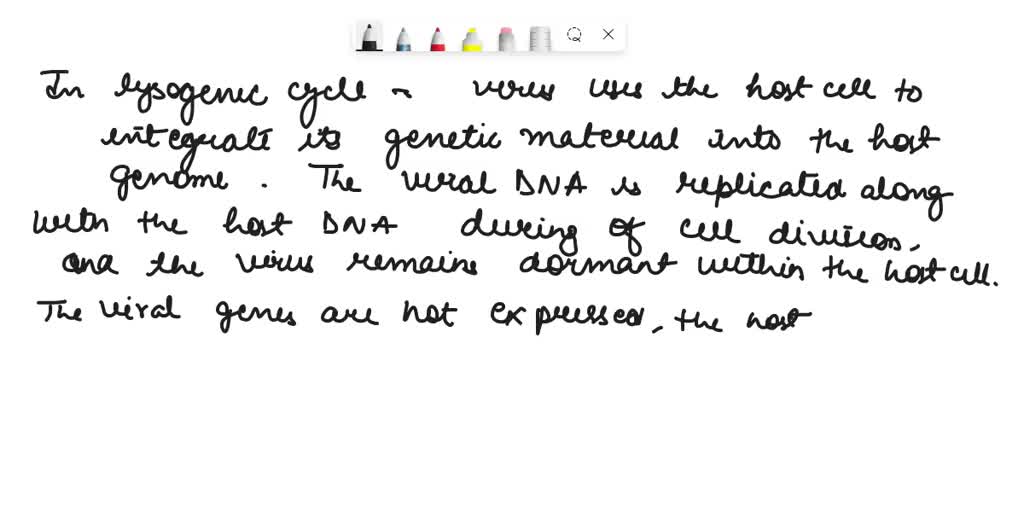 In lysogenic cycle ~ virus uses the host cell to
integrate its genetic material into the host
genome. The viral DNA is replicated along
with the host DNA during of cell division,
and the virus remains dormant within the host cell.
The viral genes are not expressed, the host